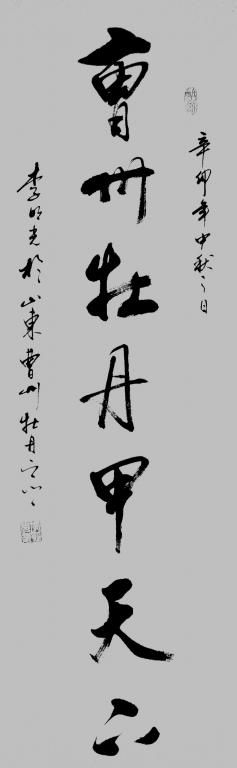 辛卯年中秋之日
曹州牡丹甲天下
李明光於山東曹州牡丹之